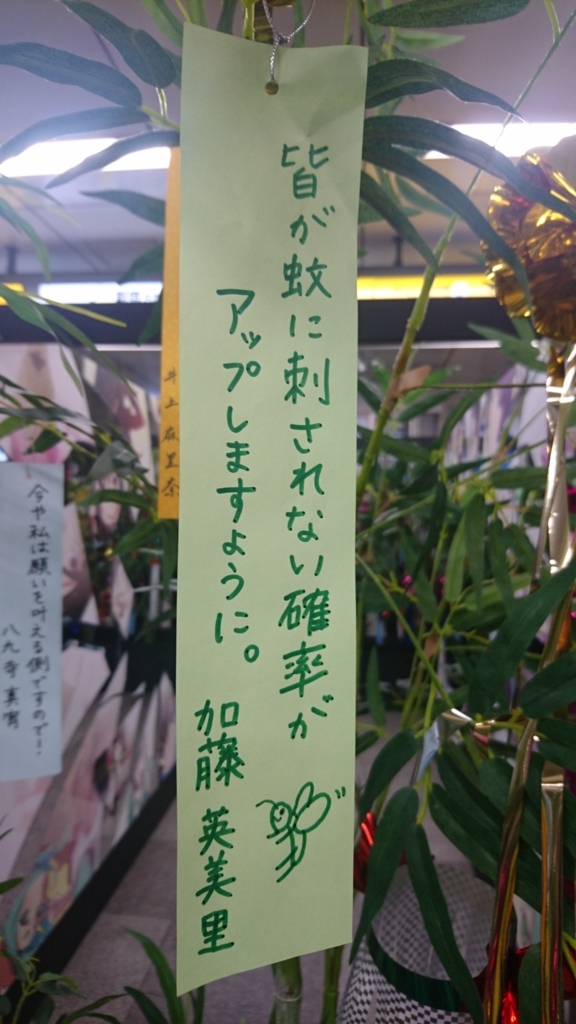 皆が蚊に刺されない確率が
アップしますように。
加藤 英美里
井上麻里奈
今や私は願いを叶える側ですので…
八九寺真宵